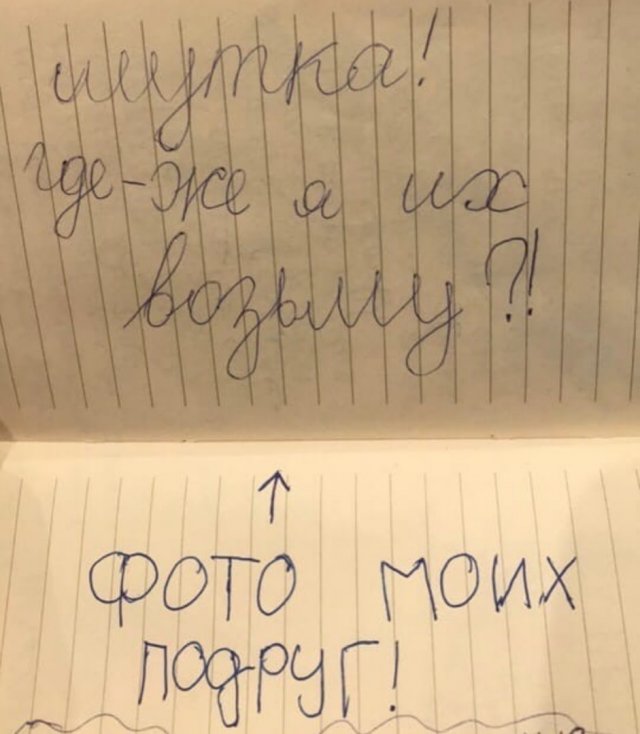 шутка!
где-же я их
возьму?!
↑
ФОТО МОИХ
ПОДРУГ!